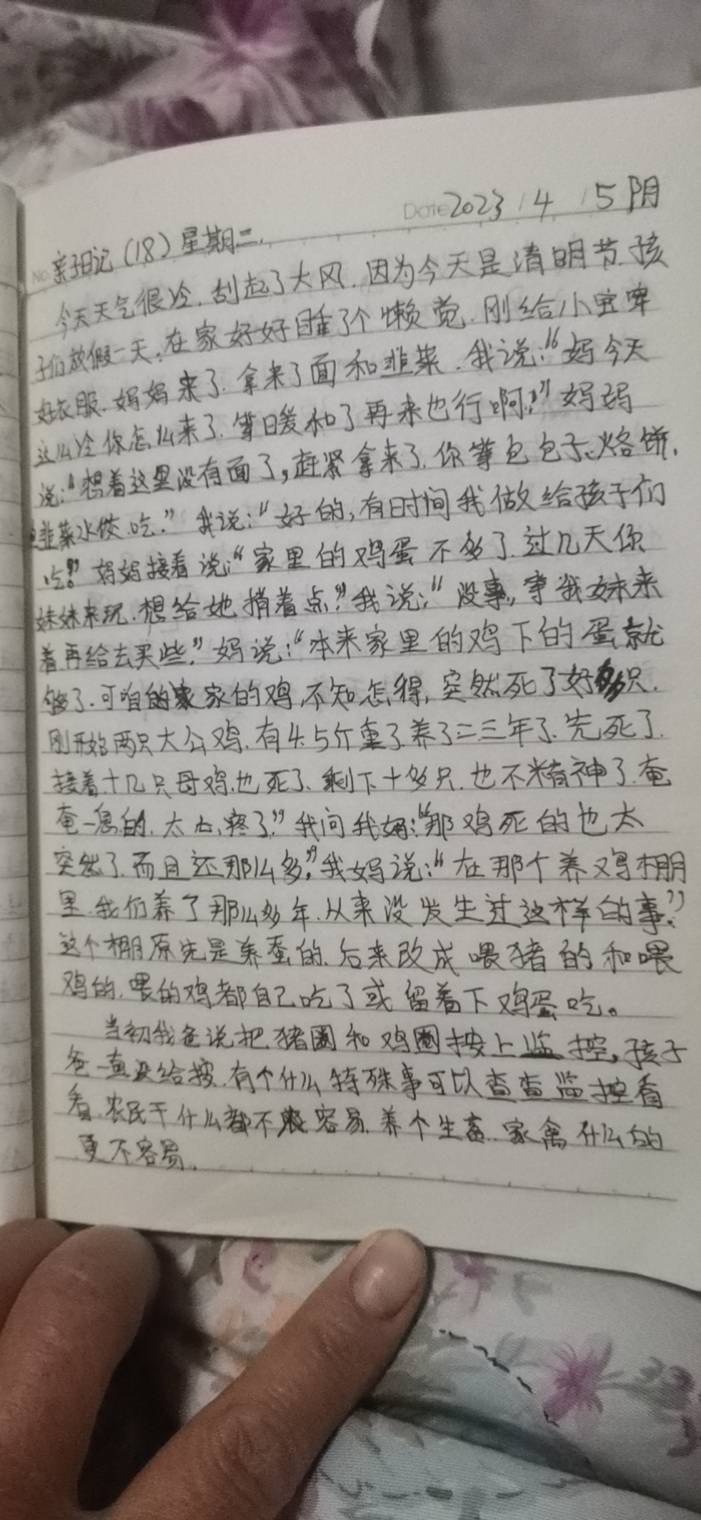 Date 2023 / 4 / 5 阴
No. 亲子日记（18）星期二.
今天天气很冷.刮起了大风.因为今天是清明节.孩
子们放假一天,在家好好睡了个懒觉.刚给小宝穿
好衣服.妈妈来了.拿来了面和韭菜.我说:“妈今天
这么冷你怎么来了.等日暖和了再来也行啊?”妈妈
说:“想着这里没有面了,赶紧拿来了.你等包包子、烙饼.
韭菜水饺.吃.”我说:“好的,有时间我做给孩子们
吃!”妈妈接着说:“家里的鸡蛋不多了.过几天你
妹妹来玩.想给她捎着点?”我说:“没事,等我妹来
着再给去买些.”妈说:“本来家里的鸡下的蛋就
够了.可咱的家的鸡,不知怎得,突然死了好多只.
刚开始两只大公鸡.有4.5斤重了养了二三年了.先死了.
接着十几只母鸡.也死了.剩下十多只.也不精神了.奄
奄一息的.太心疼了.”我问我妈:“那鸡死的也太
突然了.而且还那么多?”我妈说:“在那个养鸡棚
里.我们养了那么多年.从来没发生过这样的事.”
这个棚原先是养蚕的.后来改成喂猪的和喂
鸡的.喂的鸡都自己吃了或留着下鸡蛋吃。
当初我爸说把猪圈和鸡圈按上监控,孩子
爸一直没给按.有个什么特殊事可以查查监控看
看.农民干什么都不容易.养个生畜.家禽什么的
更不容易.